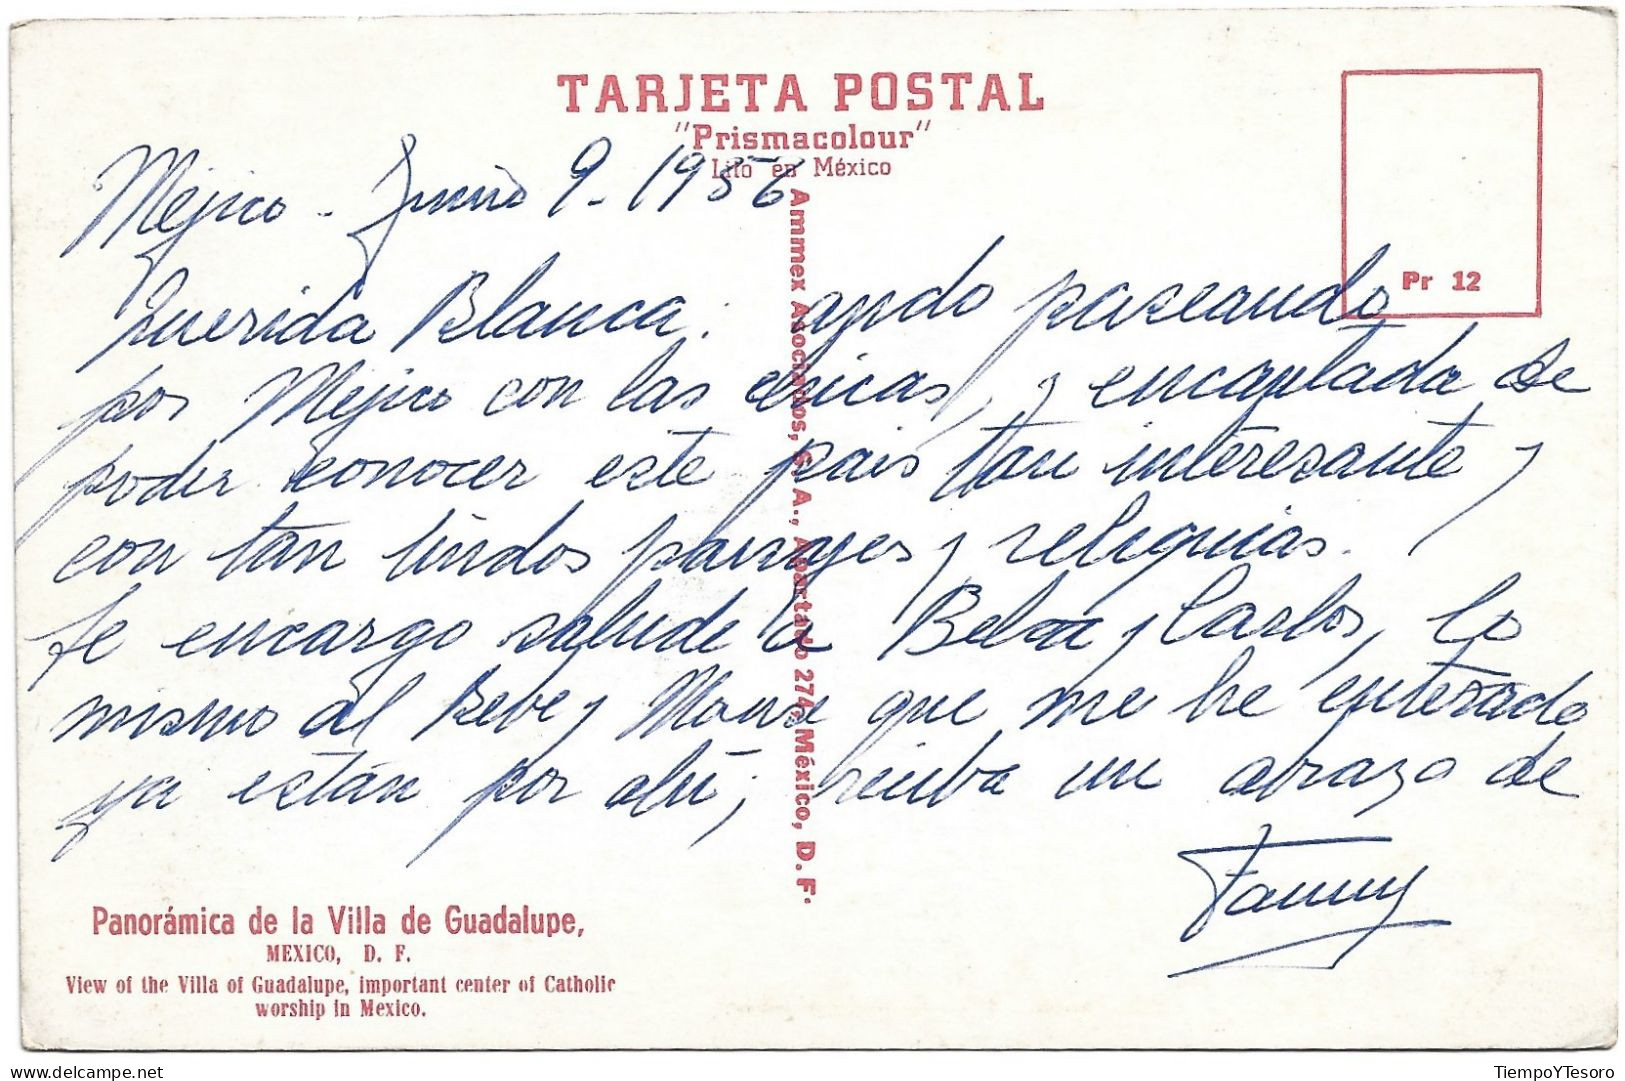 TARJETA POSTAL
"Prismacolour"
Lito en México
Pr 12
Ammex Asociados, S. A., Apartado 274, México, D. F.
Méjico - Junio 9 - 1956
Querida Blanca: ando paseando
por Mejico con las chicas, y encantada de
poder conocer este pais tan interesante y
con tan lindos paisajes y reliquias.
Te encargo salude a y Carlos, lo
mismo al Bebe y que me he enterado
ya están por ahí; reciba un abrazo de
Fanny
Panorámica de la Villa de Guadalupe,
MEXICO, D. F.
View of the Villa of Guadalupe, important center of Catholic
worship in Mexico.
TiempoYTesoro